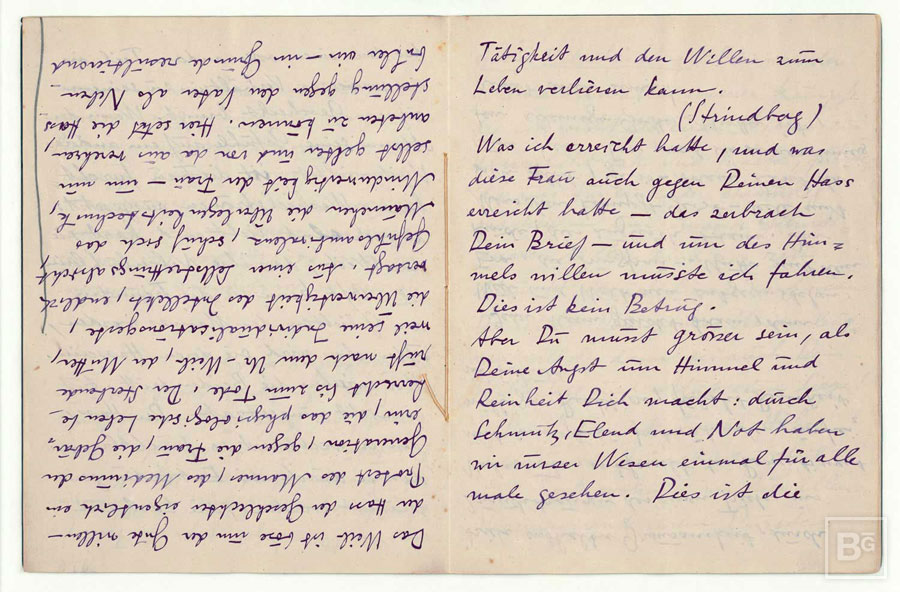 Das Weib ist böse um der Güte willen —
der Hass der Geschlechter eigentlich ein
Protest des Mannes, des Mediums der
Generation, gegen die Frau, die Gebär-
erin, die das physiologische Leben be-
herrscht bis zum Tode. Der Sterbende
ruft nach dem Ur-Weib, der Mutter,
weil seine
die Überwertigkeit des Intellekts, endlich
versagt. Aus einer Selbstrettungsabsicht,
Gefühlsambivalenz, schuf sich das
Männchen die Überlegenheitstechnik,
Minderwertigkeit der Frau — um nun
selbst gelten und von da aus verehren,
anbeten zu können. Hier setzt die Hass
stellung gegen den Vater als Neben-
buhler ein — im Grunde resultierend
Tätigkeit und den Willen zum
Leben verlieren kann.
(Strindberg)
Was ich erreicht hatte, und was
diese Frau auch gegen Deinen Hass
erreicht hatte — das zerbrach
Dein Brief — und um des Him=
mels willen musste ich fahren.
Dies ist kein Betrug.
Aber Du musst grösser sein, als
Deine Angst um Himmel und
Reinheit Dich macht: durch
Schmutz, Elend und Not haben
wir unser Wesen einmal für alle
male gesehen. Dies ist die
BG